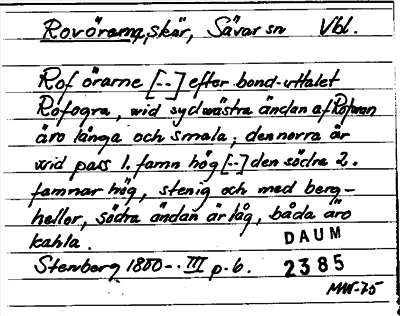 Rovörarna, skär, Sävar sn Vbl.
Rof örarne [--] efter bond-uttalet
Rofogra, wid sydwästra ändan af Röfwan
äro långa och smala; den norra är
wid pass 1. famn hög [--] den södra 2.
famnar hög, stenig och med berg-
hellor, södra ändan är låg, båda äro
kahla.
DAUM
Stenberg 1800-. III p. 6. 2385
MW-75